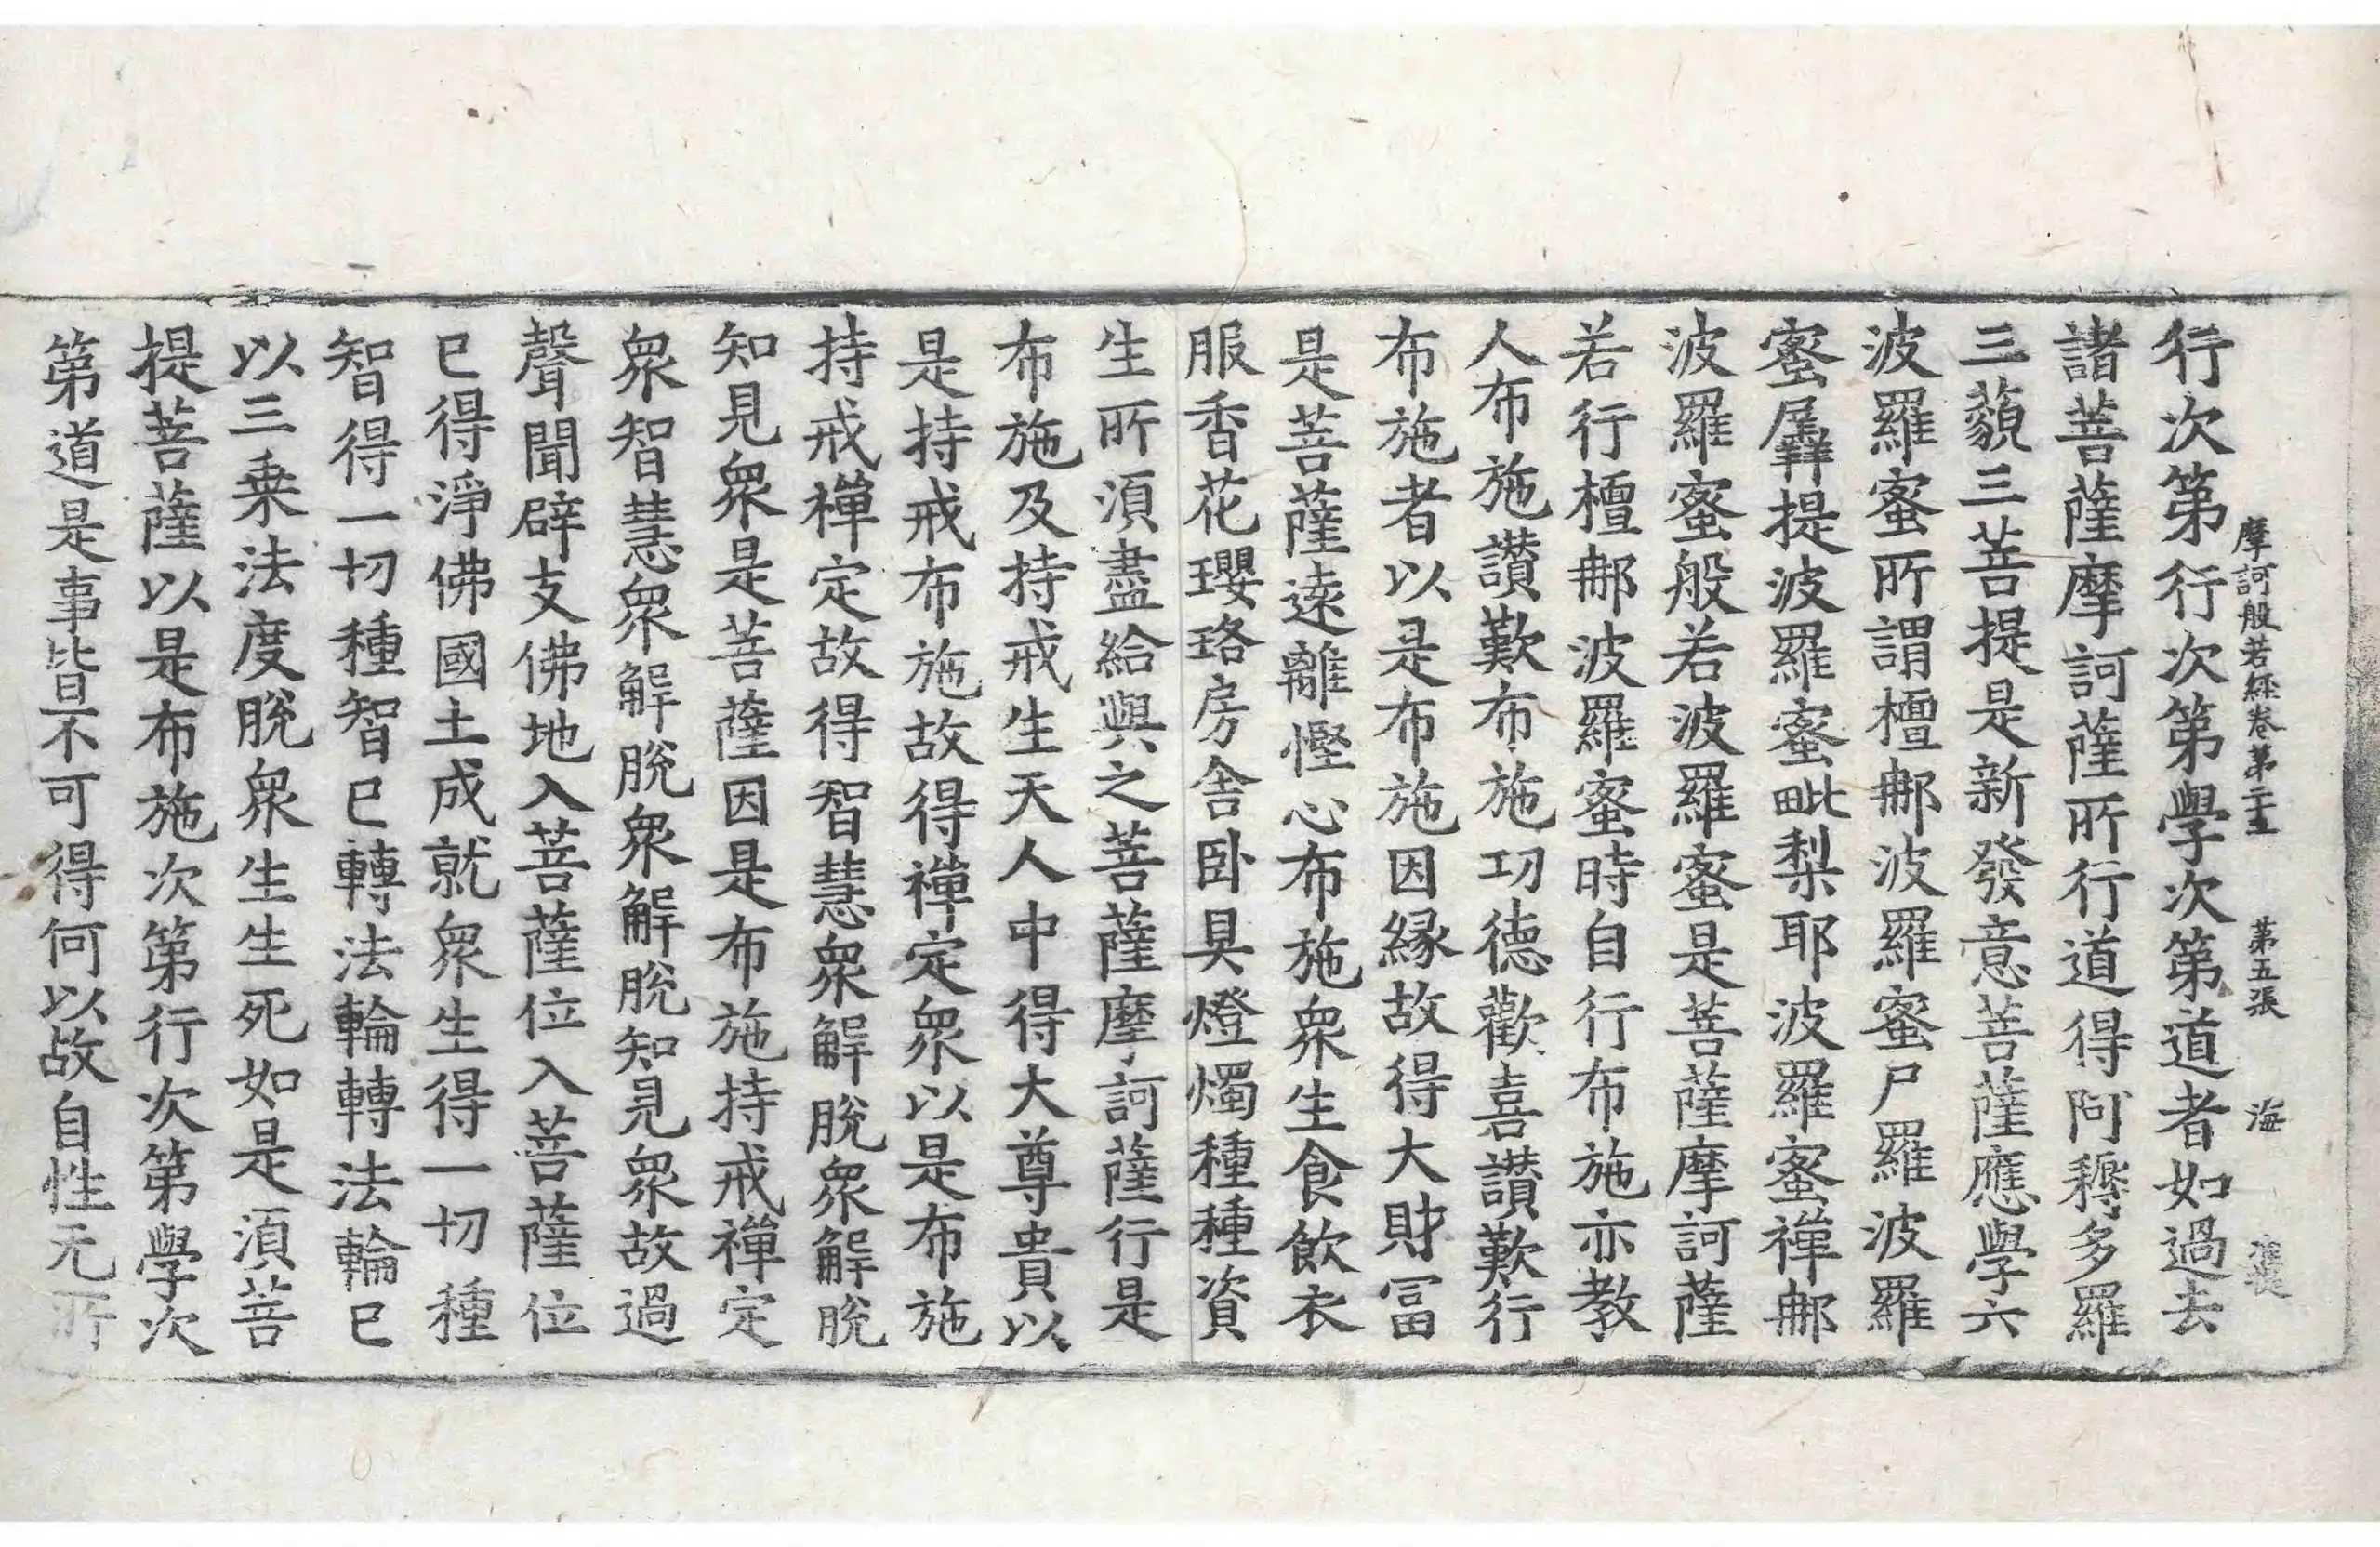 摩訶般若經卷第二十五 第五張 海
行次第行次第學次第道者如過去
諸菩薩摩訶薩所行道得阿耨多羅
三藐三菩提是新發意菩薩應學六
波羅蜜所謂檀那波羅蜜尸羅波羅
蜜羼提波羅蜜毗梨耶波羅蜜禪那
波羅蜜般若波羅蜜是菩薩摩訶薩
若行檀那波羅蜜時自行布施亦教
人布施讃歎布施功德歡喜讃歎行
布施者以是布施因緣故得大財冨
是菩薩遠離慳心布施衆生食飲衣
服香花瓔珞房舍卧具燈燭種種資
生所須盡給與之菩薩摩訶薩行是
布施及持戒生天人中得大尊貴以
是持戒布施故得禪定衆以是布施
持戒禪定故得智慧衆解脫衆解脫
知見衆是菩薩因是布施持戒禪定
衆智慧衆解脫衆解脫知見衆故過
聲聞辟支佛地入菩薩位入菩薩位
已得淨佛國土成就衆生得一切種
智得一切種智已轉法輪轉法輪已
以三乗法度脫衆生生死如是須菩
提菩薩以是布施次第行次第學次
第道是事皆不可得何以故自性无所